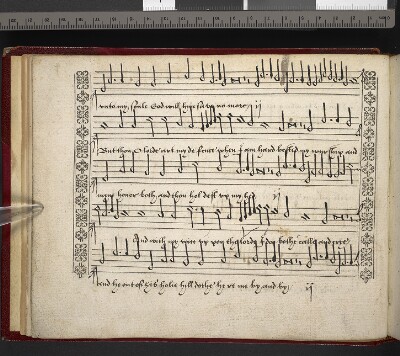 unto my soule God will hym save no more ij
But thou O lorde art my defence when I am hard bestad my worship and
myne honor both and thou holdest up my hed ij
And with my voice upon the lorde I doo bothe call and crye
and he out of his holie hill dothe here me by and by ij